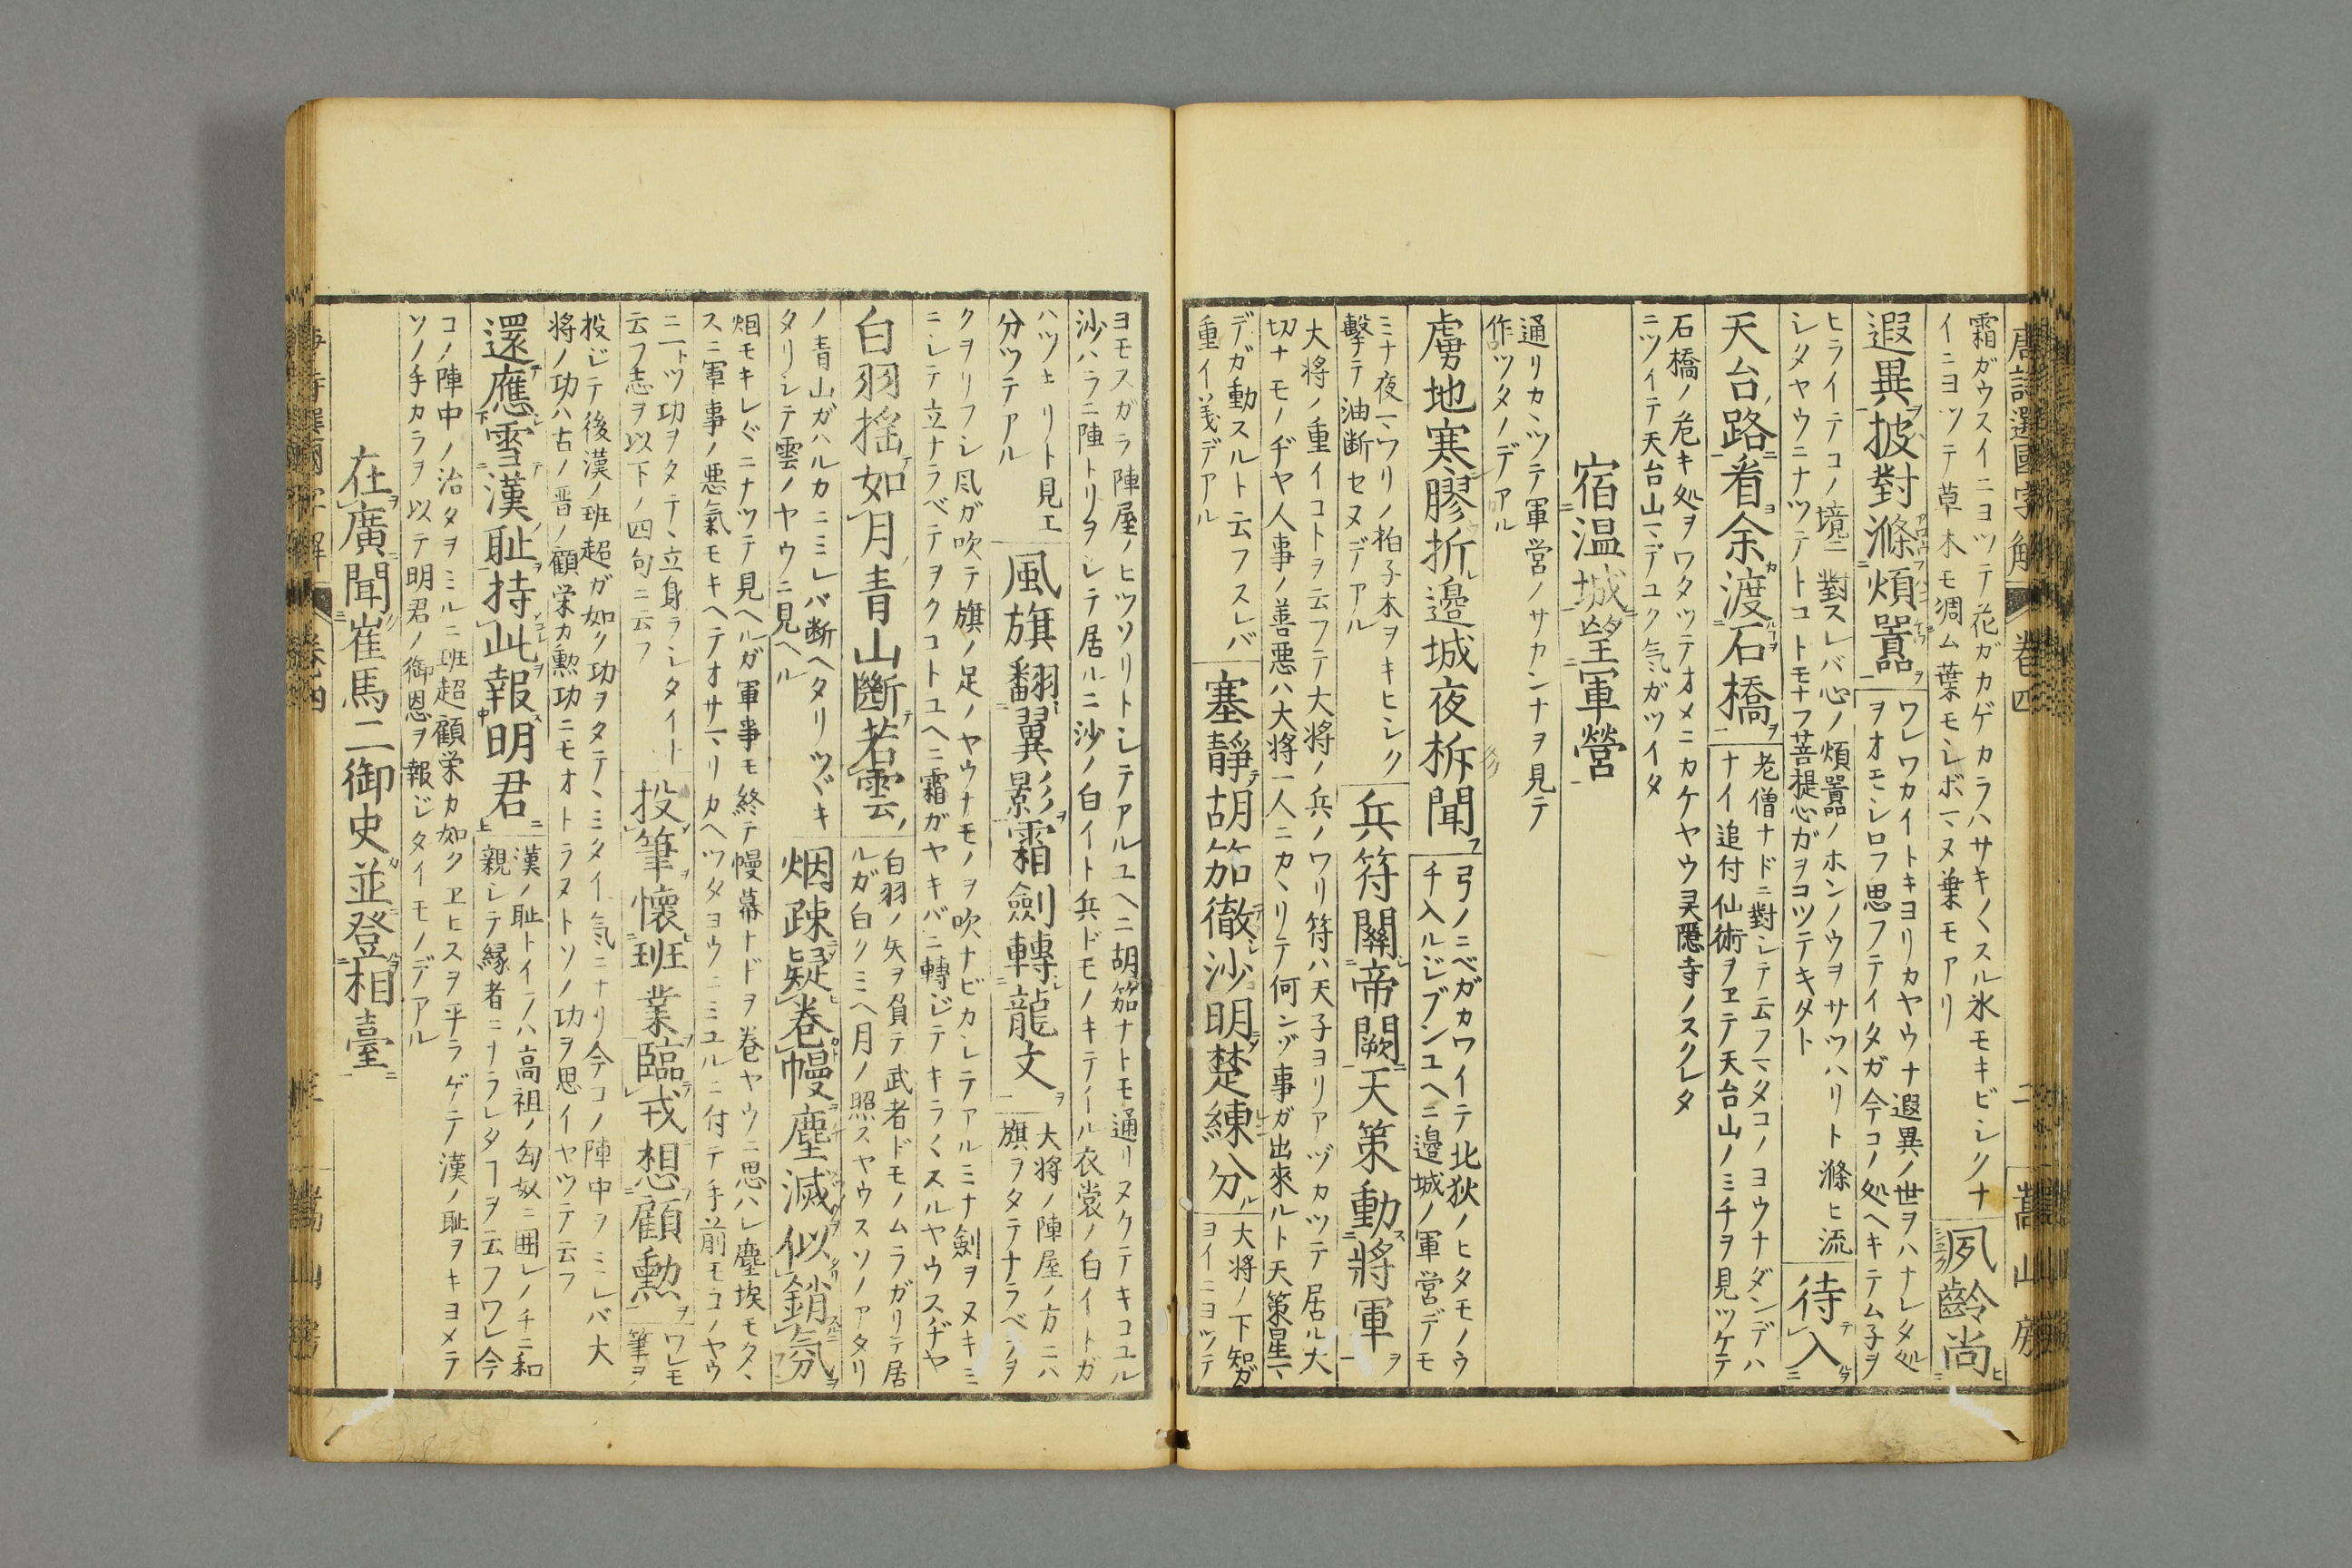 唐詩選國字解 卷四 二 嵩山房
霜ガウスイニヨツテ花ガカゲカラハサキ〱スル氷モキビシクナ
イニヨツテ草木モ凋ム葉モシボマヌ葉モアリ
夙齡尚
遐異披對滌煩囂
ワレワカイトキヨリカヤウナ遐異ノ世ヲハナレタ処
ヲオモシロフ思フテイタガ今コノ処ヘキテム子ヲ
ヒライテコノ境ニ對スレバ心ノ煩囂ノホンノウヲサツハリト滌ヒ流
シタヤウニナツテトコトモナフ菩提心ガヲコツテキタト
待入
天台路看余渡石橋
老僧ナドニ對シテ云フマタコノヨウナダンデハ
ナイ追付仙術ヲヱテ天台山ノミチヲ見ツケテ
石橋ノ危キ処ヲワタツテオメニカケヤウ灵隱寺ノスクレタ
ニツイテ天台山マデユク気ガツイタ
宿温城望軍營
通リカヽツテ軍営ノサカンナヲ見テ
作ツタノデアル
虜地寒膠折邊城夜柝聞
弓ノニベガカワイテ北狄ノヒタモノウ
チ入ルジブンユヘニ邉城ノ軍営デモ
ミナ夜マワリノ柏子木ヲキビシク
擊テ油断セヌデアル
兵符關帝闕天策動將軍
大将ノ重イコトヲ云フテ大将ノ兵ノワリ符ハ天子ヨリアヅカツテ居ル大
切ナモノヂヤ人事ノ善悪ハ大将一人ニカヽリテ何ンゾ事ガ出來ルト天策星マ
デガ動スルト云フスレバ
重イ義デアル
塞靜胡笳徹沙明楚練分
大将ノ下知ガ
ヨイニヨツテ
ヨモスガラ陣屋ノヒツソリトシテアルユヘニ胡笳ナトモ通リヌケテキコユル
沙ハラニ陣トリヲシテ居ルニ沙ノ白イト兵ドモノキテイル衣裳ノ白イトガ
ハツキリト見エ
分ツテアル
風旗翻翼影霜劍轉龍文
大将ノ陣屋ノ方ニハ
旗ヲタテナラベヲヲ
クヲリフシ凨ガ吹テ旗ノ足ノヤウナモノヲ吹ナビカシテアルミナ剣ヲヌキミ
ニシテ立ナラベテヲクコトユヘニ霜ガヤキバニ轉ジテキラ〱スルヤウスヂヤ
白羽摇如月青山斷若雲
白羽ノ矢ヲ負テ武者ドモノムラガリテ居
ルガ白クミヘ月ノ照スヤウスソノアタリ
ノ青山ガハルカニミレバ断ヘタリツヾキ
タリシテ雲ノヤウニ見ヘル
烟疎疑卷幔塵滅似銷氛
烟モキレ〲ニナツテ見ヘルガ軍事モ終テ幔幕ナドヲ巻ヤウニ思ハレ塵埃モタヽ
スニ軍事ノ悪氣モキヘテオサマリカヘツタヨウニミユルニ付テ手前モコノヤウ
ニ一トツ功ヲタテヽ立身ヲシタイト
云フ志ヲ以下ノ四句ニ云フ
投筆懷班業臨戎想顧勲
ワレモ
筆ヲ
投ジテ後漢ノ班超ガ如ク功ヲタテヽミタイ気ニナリ今コノ陣中ヲミレバ大
将ノ功ハ古ノ晋ノ顧栄カ勲功ニモオトラヌトソノ功ヲ思イヤツテ云フ
還應雪漢耻持此報明君
漢ノ耻トイフハ高祖ノ匈奴ニ囲レノチニ和
親シテ縁者ニナラレタヿヲ云フワレ今
コノ陣中ノ治タヲミルニ班超顧栄カ如クヱヒスヲ平ラゲテ漢ノ耻ヲキヨメテ
ソノ手カラヲ以テ明君ノ御恩ヲ報ジタイモノデアル
在廣聞崔馬二御史並登相臺